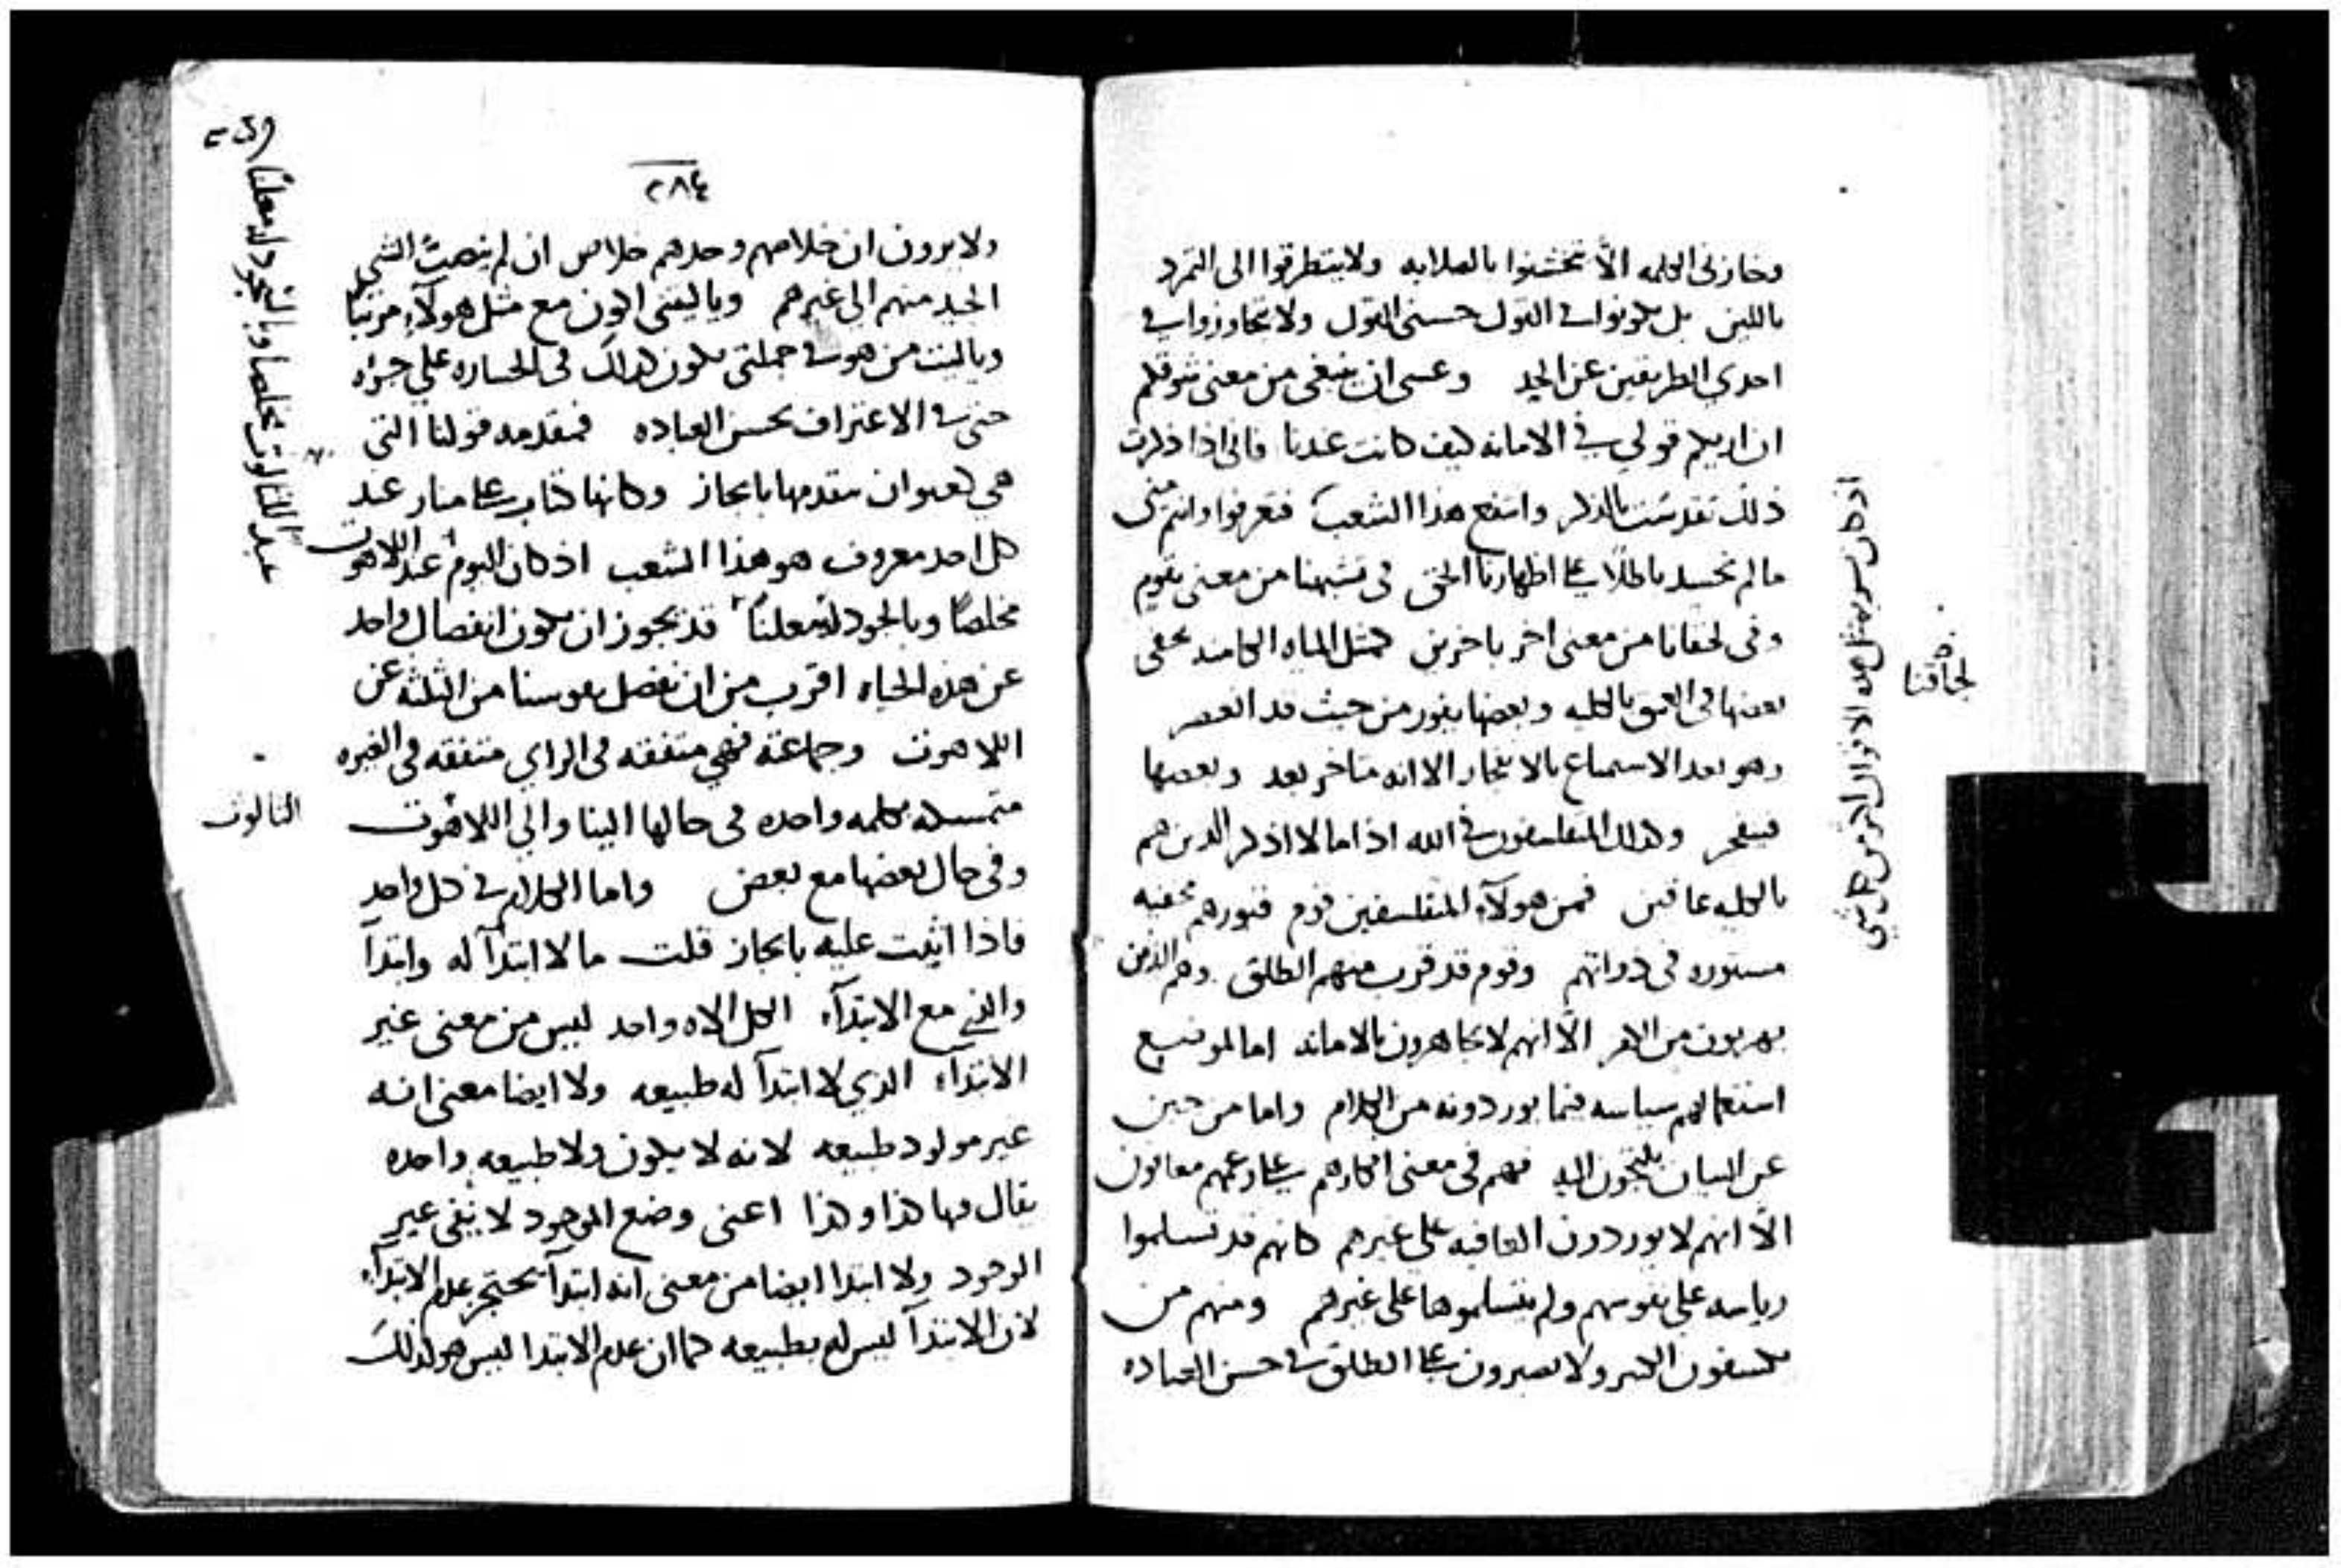 وخازني الكلمه الا تخشنوا بالصلابه ولا يتطرقوا الى التمرد
باللين بل يكونوا في القول حسنى القول ولا يتجاوزوا في
احدي الطريقين عن الجيد وعسى ان ينبغى من معنى شوقكم
ان اريكم قولي في الامانه كيف كانت عندنا فانى اذا ذكرت
ذلك تقدست بالذكر وانتفع هذا الشعب فتعرفوا وانتم متى
ما لم نجسد باطلا على اظهارنا الحق فى نسبتنا من معنى يقوم
وفى لحقانا من معنى اخر باخرين كمثل المياه الكامنه يخفى
بعضها فى العمق بالكليه وبعضها يفور من حيث قد انعصر
وهو بعد الاستماع بالانفجار الا انه متاخر بعد وبعضها
فينفجر وكذلك المتفلسفون في الله اذ اما لا اذكر الذين هم
بالكليه عاقين فمن هولآء المتفلسفين قوم فتورهم مخفيه
مستوره فى ذواتهم وقوم قد قرب منهم الطلق وهم الذين
يهربون من الامر الا انهم لا يجاهرون بالامانه اما لموضع
استعمالهم سياسه فيما يوردونه من الكلام واما من جبن
عن البيان يلتجون اليه فهم فى معنى افكارهم على زعمهم معافون
الا انهم لا يوردون العافيه على غيرهم كانهم قد تسلموا
رياسه على نفوسهم ولم يتسلموها على غيرهم ومنهم من
يكشفون الكنز ولا يصبرون على الطلق في حسن العباده
اذ كان نسر به مثل هذه الاقوال اكثر من كل شي
لحاقنا
٢٨٤
ولا يرون ان خلاصهم وحدهم خلاص ان لم ينصب الشي
الجيد منهم الى غيرهم ويا ليتنى اكون مع مثل هولآء مرتبا
ويا ليت من هو في جملتى يكون كذلك فى الجساره على جراه
حتى في الاعتراف بحسن العباده فمتقدمه قولنا التى
هي كعنوان متقدمها بايجاز وكانها كتاب على منار عند
كل احد معروف هو هذا الشعب اذ كان اليوم عبد اللاهوت
مخلصا وبالجود له معلنا قد يجوز ان يكون انفصال واحد
عن هذه الحياه اقرب من ان تفصل نفوسنا من الثلثه عن
اللاهوت وجماعته فهي متفقه فى الراي متفقه فى الغيره
متمسكه بكلمه واحده فى حالها الينا والي اللاهوت
وفى حال بعضها مع بعض واما الكلام في كل واحد
فاذا اتيت عليه بايجاز قلت ما لا ابتدآ له وابتدآ
والذي مع الابتدآء الكل الاه واحد ليس من معنى غير
الابتدآء الذي لا ابتدآ له طبيعه ولا ايضا معنى انه
غير مولود طبيعه لانه لا يكون ولا طبيعه واحده
يقال فيها كذا وكذا اعنى وضع الموجود لا بنفى غير
الموجود ولا ابتدا ايضا من معنى انه ابتدآ يحتجز عدم الابتدآء
لان الابتدآ ليس له بطبيعه كما ان عدم الابتدا ليس هو كذلك
عبد للثالوث مخلصا وبالسجود له معلنا
الثالوث